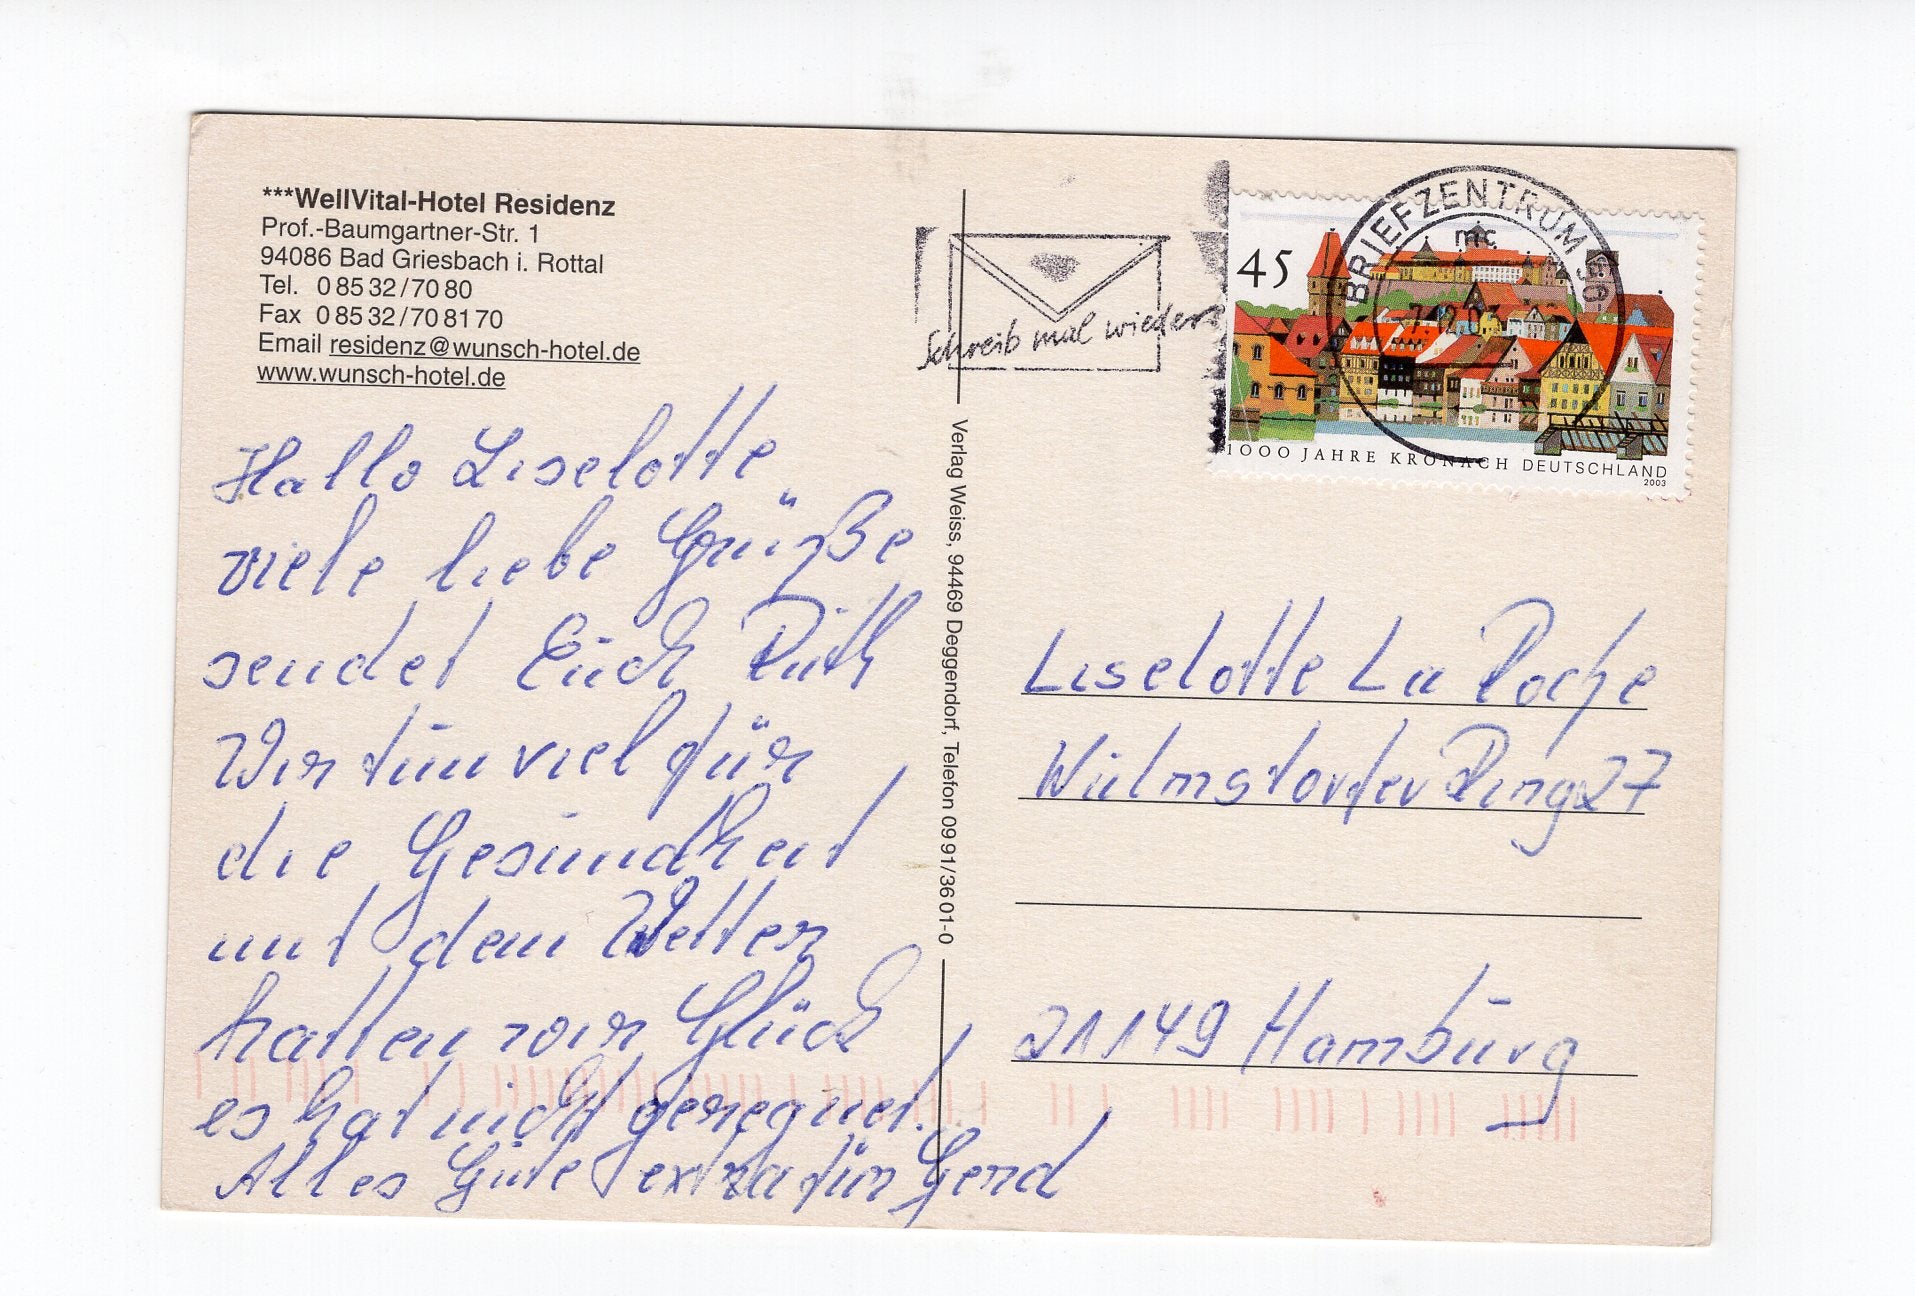 ***WellVital-Hotel Residenz
Prof.-Baumgartner-Str. 1
94086 Bad Griesbach i. Rottal
Tel. 0 85 32 / 70 80
Fax 0 85 32 / 70 81 70
Email residenz@wunsch-hotel.de
www.wunsch-hotel.de
Hallo Liselotte
viele liebe Grüße
sendet Euch Ruth
Wir tun viel für
die Gesundheit
und dem Wetter
hatten wir Glück
es hat nicht geregnet.
Alles Gute extra für Gerd
Verlag Weiss, 94469 Deggendorf, Telefon 09 91/36 01-0
Schreib mal wieder
BRIEFZENTRUM
mc
45
1000 JAHRE KRONACH DEUTSCHLAND
2003
Liselotte La Roche
Wulmstorfer Ring 27
21149 Hamburg